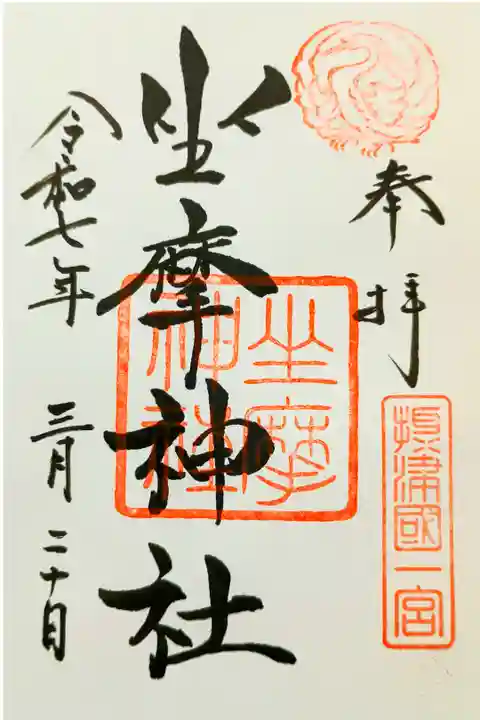 奉拝
摂津國一宮
坐摩神社
坐摩神社
令和七年 三月 二十日